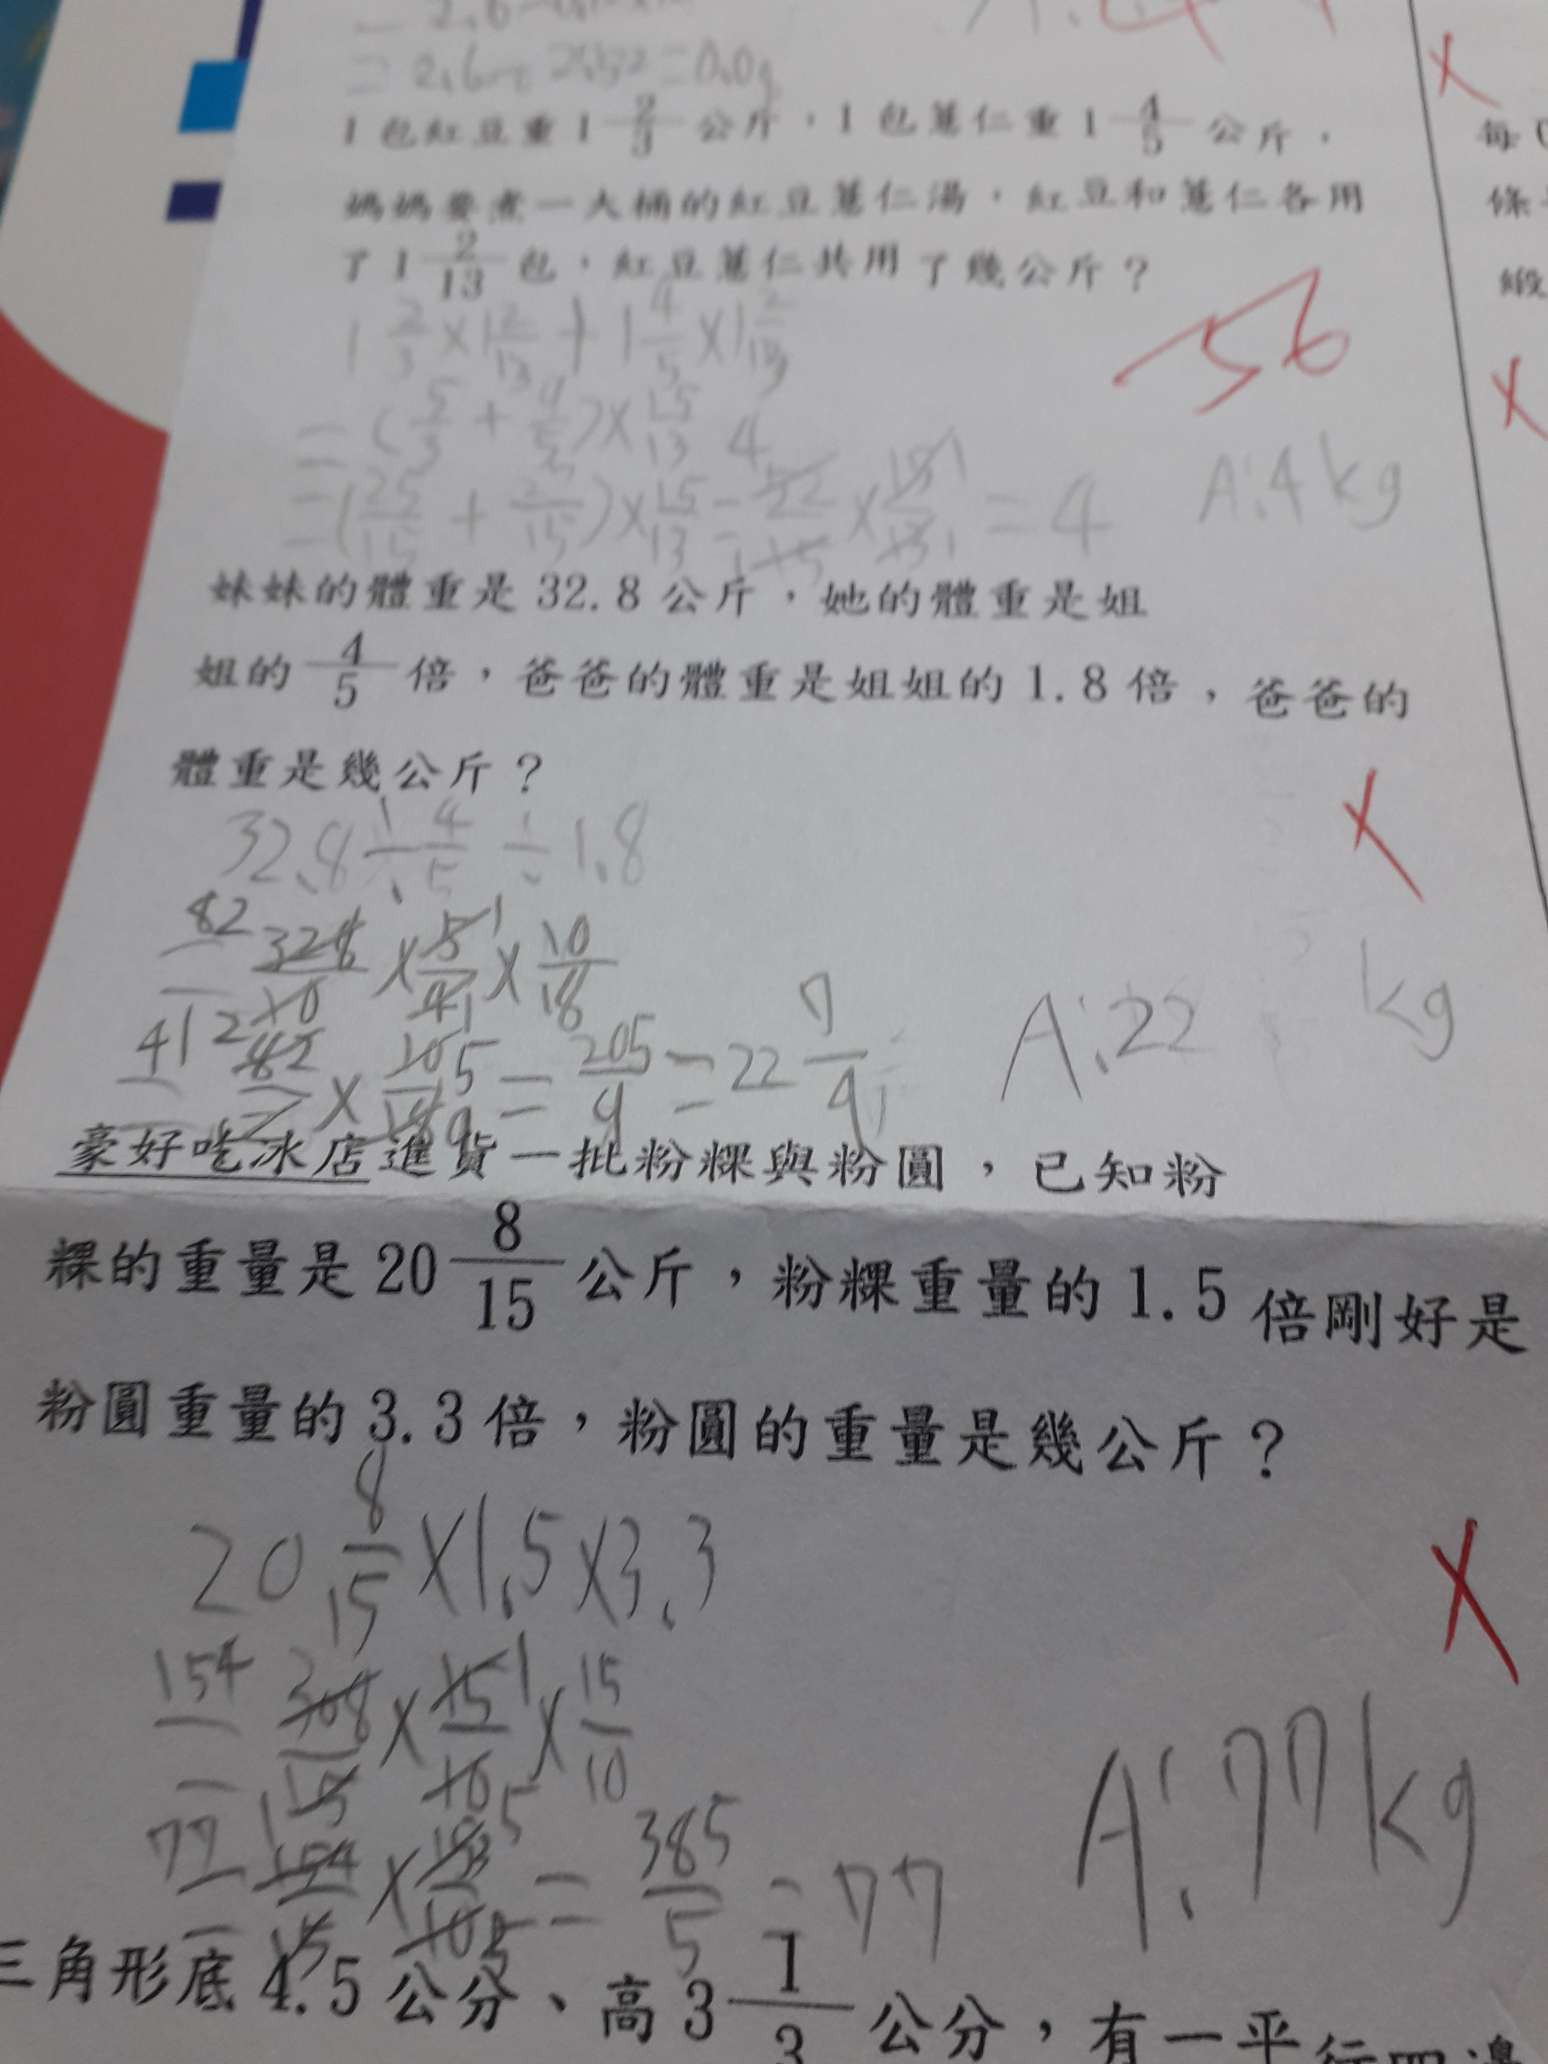 1包紅豆重1 2/3 公斤，1包薏仁重1 4/5 公斤，
媽媽要煮一大桶的紅豆薏仁湯，紅豆和薏仁各用
了1 2/13 包，紅豆薏仁共用了幾公斤？
1 2/3 × 1 2/13 + 1 4/5 × 1 2/13
56
A:4kg
妹妹的體重是32.8公斤，她的體重是姐
姐的 4/5 倍，爸爸的體重是姐姐的1.8倍，爸爸的
體重是幾公斤？
32.8 ÷ 4/5 ÷ 1.8
82
= 328/10 × 5/4 × 10/18
= 82/2 × 10/18 = 205/9 = 22 7/9
A:22 kg
豪好吃冰店進貨一批粉粿與粉圓，已知粉
粿的重量是20 8/15 公斤，粉粿重量的1.5倍剛好是
粉圓重量的3.3倍，粉圓的重量是幾公斤？
20 8/15 × 1.5 × 3.3
154
= 308/15 × 15/10 × 15/10
= 385/5 = 77
A:77kg
三角形底4.5公分、高3 1/3 公分，有一平行四邊
每
條
緞